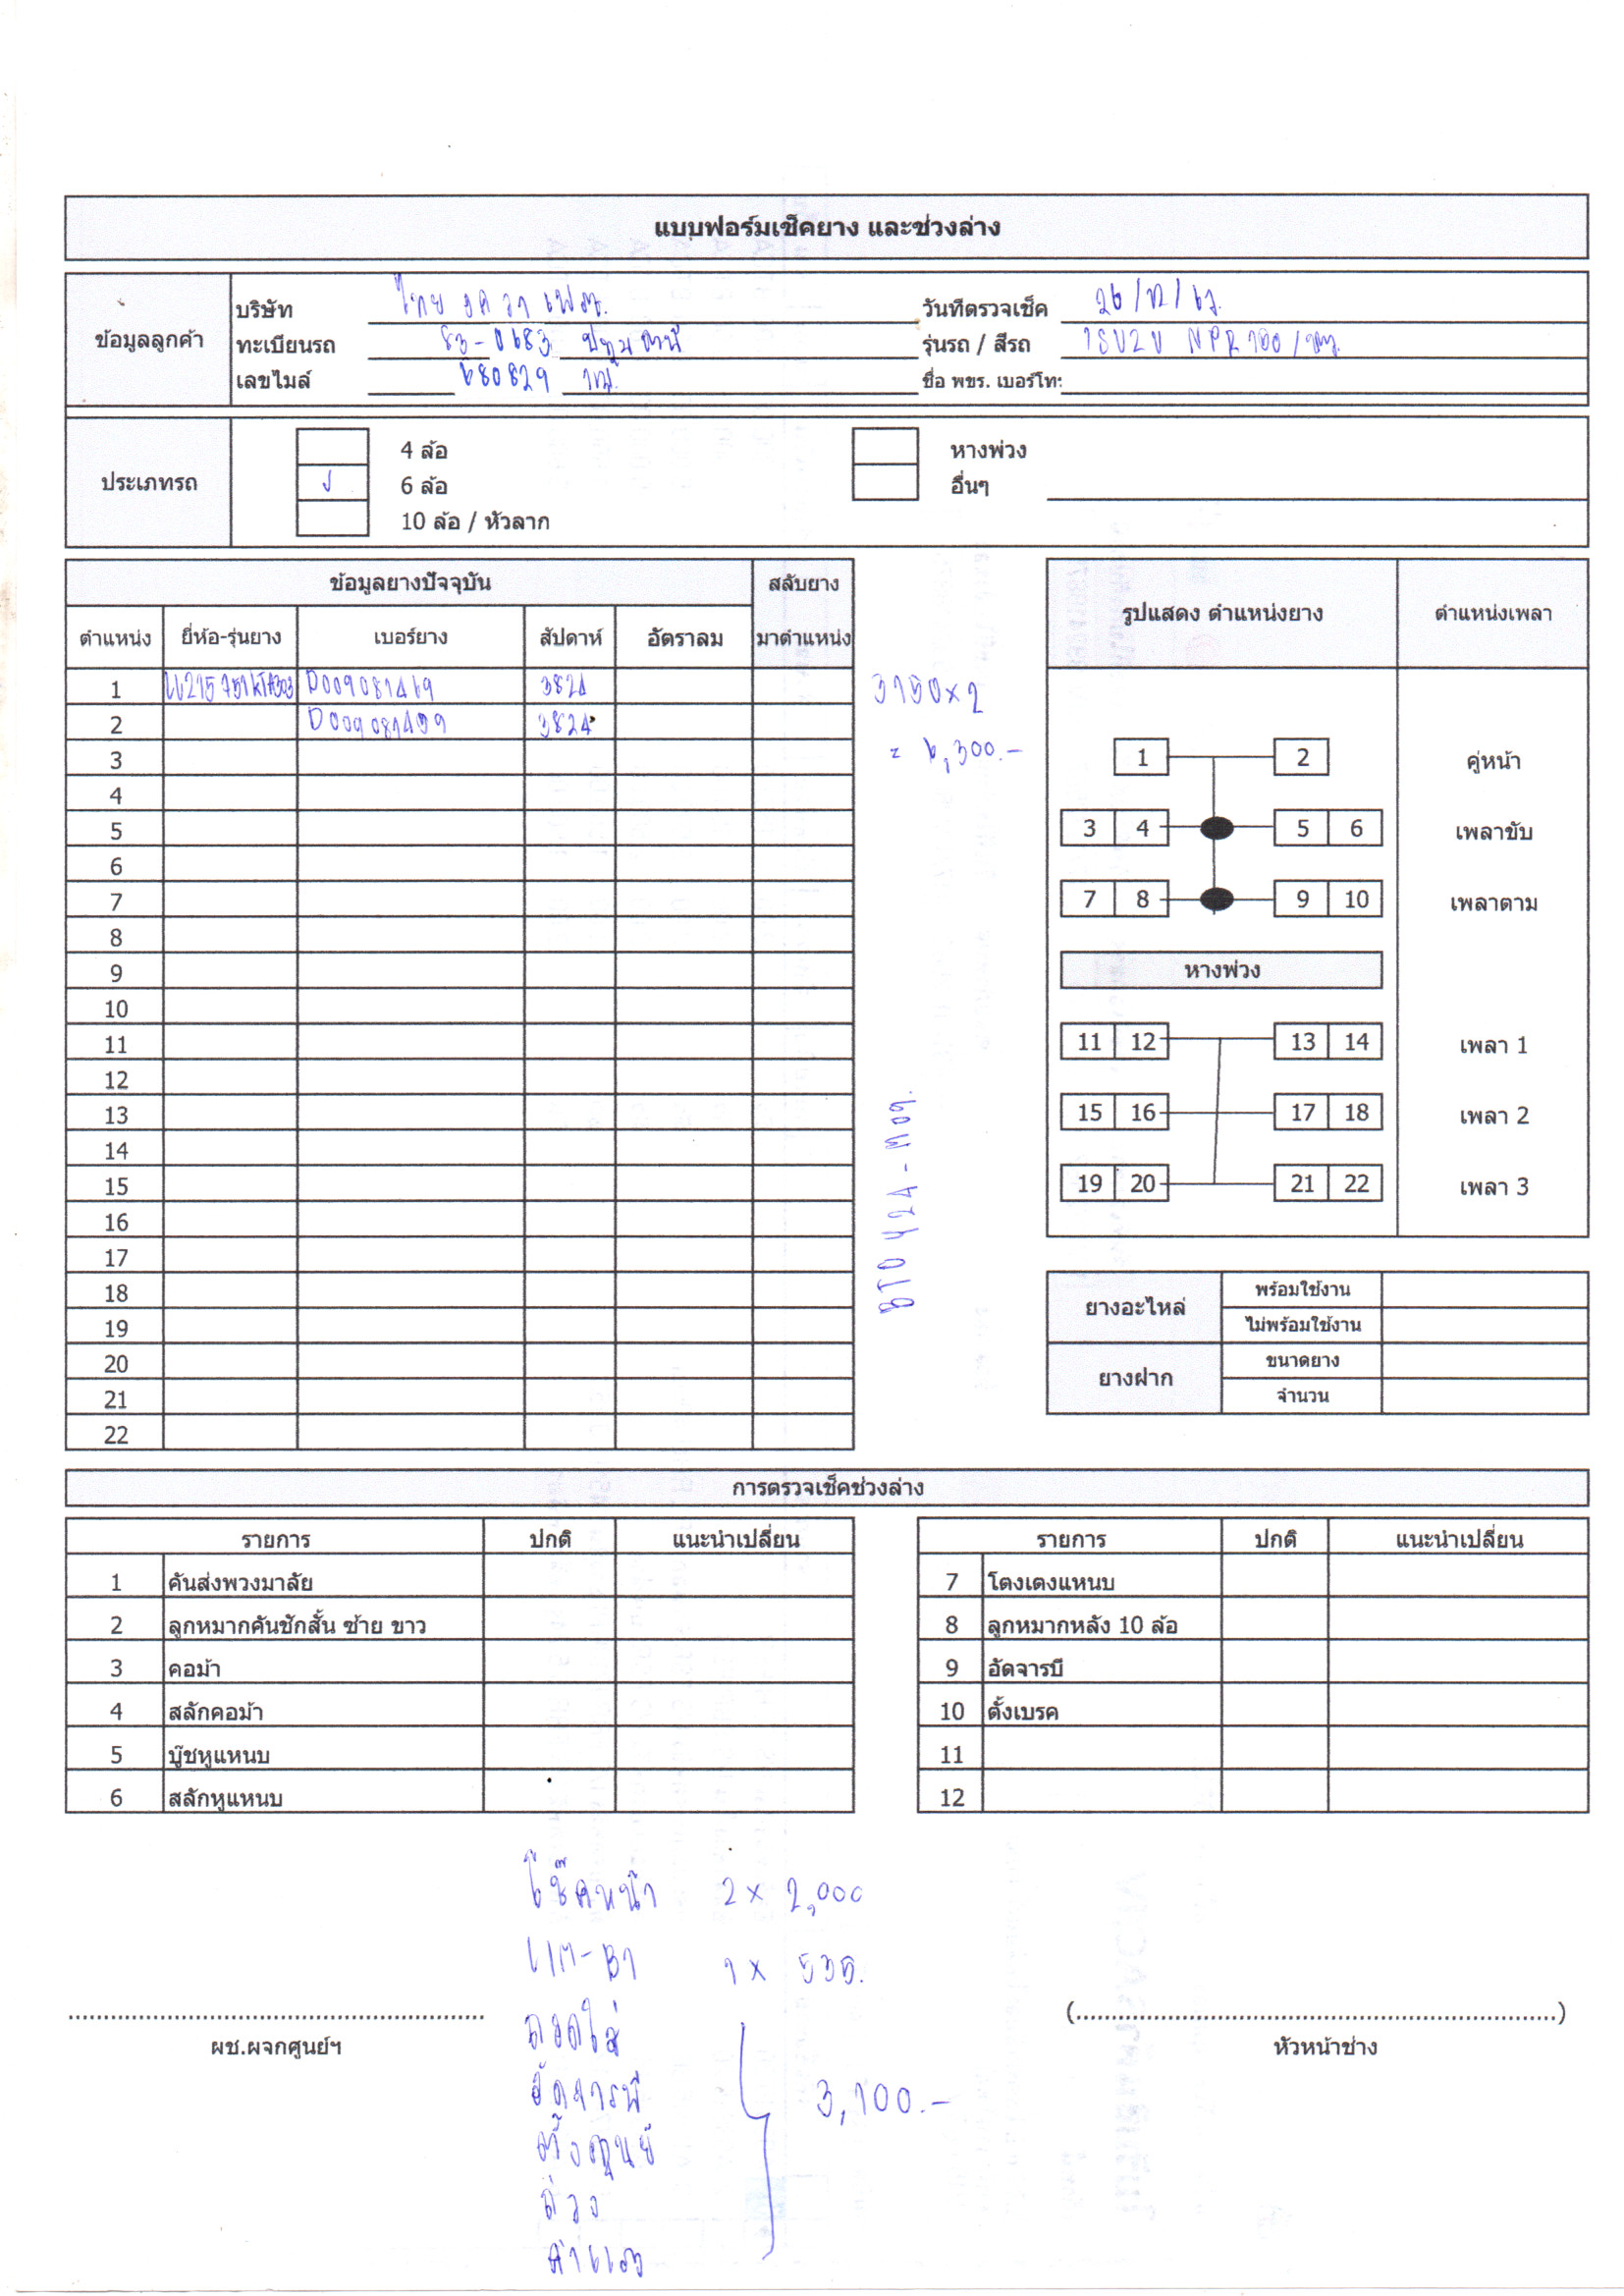 แบบฟอร์มเช็คยาง และช่วงล่าง
ข้อมูลลูกค้า
บริษัท ไทย
วันที่ตรวจเช็ค 26/12/67.
ทะเบียนรถ 83-0683 ปทุมธานี
รุ่นรถ / สีรถ ISUZU NPR 150/ขาว.
เลขไมล์ 680829 กม.
ชื่อ พขร. เบอร์โท:
ประเภทรถ
4 ล้อ
หางพ่วง
6 ล้อ
อื่นๆ
10 ล้อ / หัวลาก
ข้อมูลยางปัจจุบัน สลับยาง
ตำแหน่ง ยี่ห้อ-รุ่นยาง เบอร์ยาง สัปดาห์ อัตราลม มาตำแหน่ง
1 D009081469 3824
2 D009081499 3824
3
4
5
6
7
8
9
10
11
12
13
14
15
16
17
18
19
20
21
22
3150x2
= 6,300.-
รูปแสดง ตำแหน่งยาง ตำแหน่งเพลา
1 2 คู่หน้า
3 4 5 6 เพลาขับ
7 8 9 10 เพลาตาม
หางพ่วง
11 12 13 14 เพลา 1
15 16 17 18 เพลา 2
19 20 21 22 เพลา 3
ยางอะไหล่ พร้อมใช้งาน
ไม่พร้อมใช้งาน
ยางฝาก ขนาดยาง
จำนวน
การตรวจเช็คช่วงล่าง
รายการ ปกติ แนะนำเปลี่ยน
1 คันส่งพวงมาลัย
2 ลูกหมากคันชักสั้น ซ้าย ขาว
3 คอม้า
4 สลักคอม้า
5 บู๊ชหูแหนบ
6 สลักหูแหนบ
รายการ ปกติ แนะนำเปลี่ยน
7 โตงเตงแหนบ
8 ลูกหมากหลัง 10 ล้อ
9 อัดจารบี
10 ตั้งเบรค
11
12
โช๊คหน้า 2 x 2,000
1 x 535.
ถอดใส่
อัดจารบี
ตั้งศูนย์
ถ่วง
ค่าแรง
3,100.-
ผช.ผจกศูนย์ฯ
(..........)
หัวหน้าช่าง